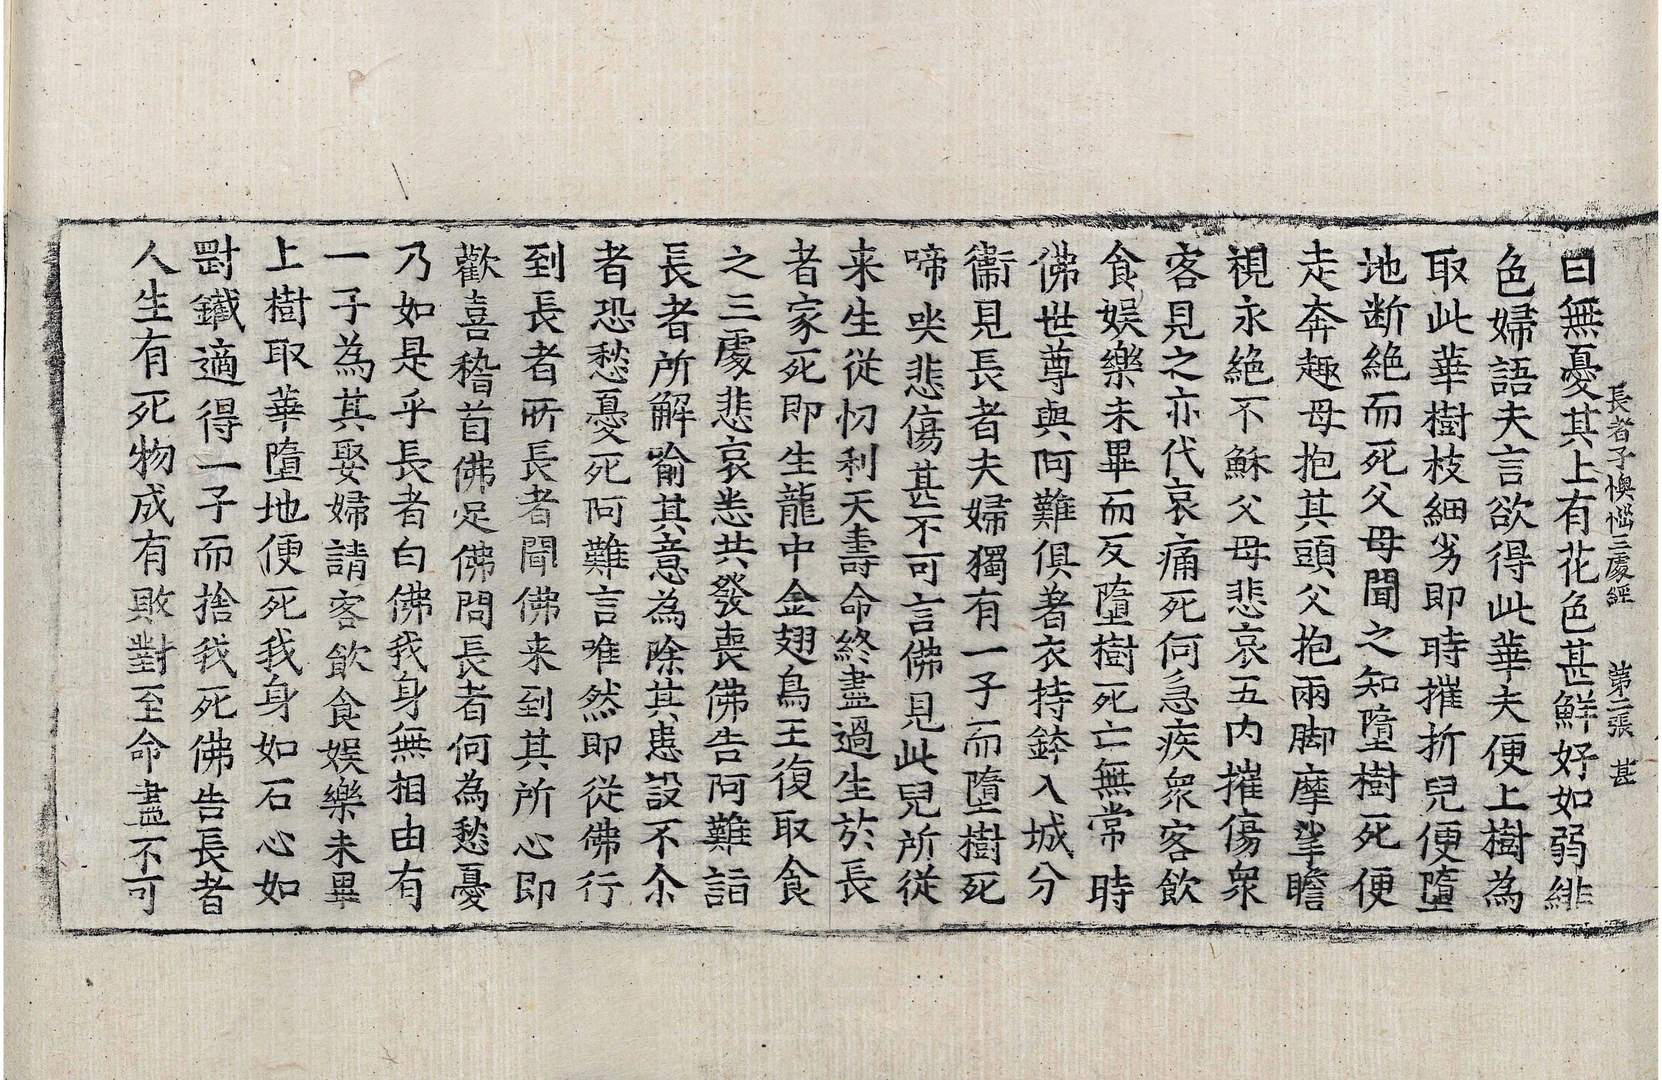 長者子懊惱三處經 第二張 甚
曰無憂其上有花色甚鮮好如弱緋
色婦語夫言欲得此華夫便上樹為
取此華樹枝細劣即時摧折兒便墮
地断絕而死父母聞之知墮樹死便
走奔趣母抱其頭父抱兩脚摩挲瞻
視永絕不穌父母悲哀五內摧傷眾
客見之亦代哀痛死何急疾眾客飲
食娛樂未畢而反墮樹死亡無常時
佛世尊與阿難俱著衣持鉢入城分
衞見長者夫婦獨有一子而墮樹死
啼哭悲傷甚不可言佛見此兒所從
来生從忉利天壽命終盡過生於長
者家死即生龍中金翅鳥王復取食
之三處悲哀悉共發喪佛告阿難詣
長者所解喻其意為除其患設不尒
者恐愁憂死阿難言唯然即從佛行
到長者所長者聞佛来到其所心即
歡喜稽首佛足佛問長者何為愁憂
乃如是乎長者白佛我身無相由有
一子為其娶婦請客飲食娛樂未畢
上樹取華墮地便死我身如石心如
剛鐵適得一子而捨我死佛告長者
人生有死物成有敗對至命盡不可